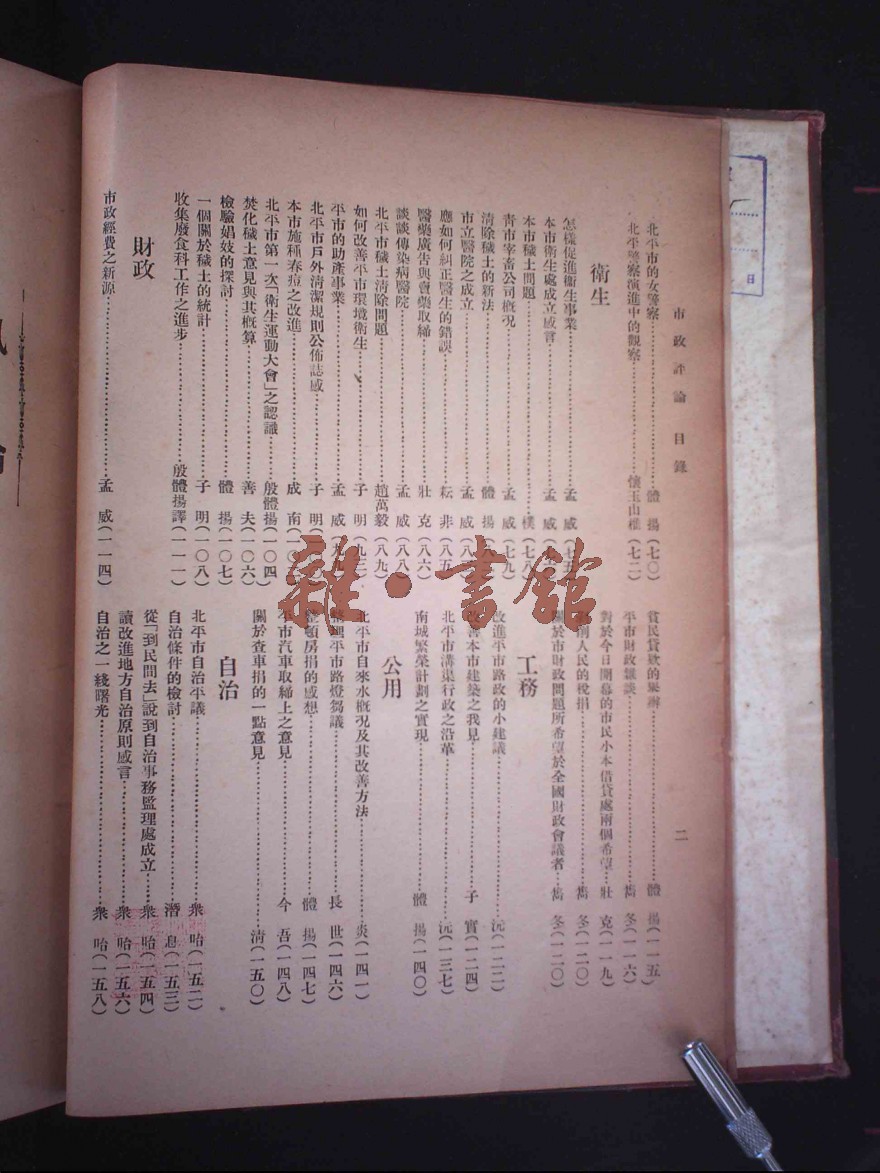 市政評論 目錄
二
北平市的女警察……體揚(七〇)
北平警察演進中的觀察……懷玉山樵(七二)
衛生
怎樣促進衞生事業……孟威(七五)
本市衛生處成立感言……孟威
本市穢土問題……樸(七八)
青市宰畜公司概況……孟威(七九)
清除穢土的新法……體揚
市立醫院之成立……孟威
應如何糾正醫生的錯誤……耘非(八五)
醫藥廣告與賣藥取締……壯克(八六)
談談傳染病醫院……孟威(八八)
北平市穢土清除問題……趙萬毅(八九)
如何改善平市環境衛生……子明(九三)
平市的助產事業……孟威(九九)
北平市戶外清潔規則公佈誌感……子明
本市施種春痘之改進……成南
北平市第一次「衛生運動大會」之認識……殷體揚(一〇四)
焚化穢土意見與其概算……善夫(一〇六)
檢驗娼妓的探討……體揚(一〇七)
一個關於穢土的統計……子明(一〇八)
收集廢食料工作之進步……殷體揚譯(一一一)
財政
市政經費之新源……孟威(一一四)
貧民貸欵的集辦……體揚(一一五)
平市財政雜談……雋冬(一一六)
對於今日開幕的市民小本借貸處兩個希望……壯克(一一九)
人民的稅捐……雋冬(一二〇)
關於市財政問題所希望於全國財政會議者……雋冬(一二〇)
工務
改進平市路政的小建議……沅(一二二)
改善本市建築之我見……子實(一二四)
北平市溝渠行政之沿革……沅(一三七)
南城繁榮計劃之實現……體揚(一四〇)
公用
北平市自來水概況及其改善方法……炎(一四一)
整理平市路燈芻議……長世(一四六)
整頓房捐的感想……體揚(一四七)
平市汽車取締上之意見……今吾(一四八)
關於查車捐的一點意見……清(一五〇)
自治
北平市自治平議……衆咍(一五二)
自治條件的檢討……潛息(一五三)
從「到民間去」說到自治事務監理處成立……衆咍(一五四)
讀改進地方自治原則感言……衆咍(一五六)
自治之一綫曙光……衆咍(一五八)
雜·書館
日